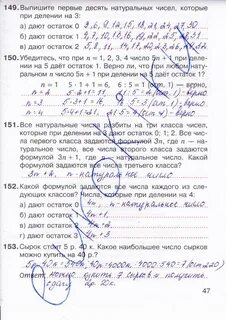 149. Выпишите первые десять натуральных чисел, которые
при делении на 3:
а) дают остаток 0 3, 6, 9, 12, 15, 18, 21, 24, 27, 30
б) дают остаток 1
в) дают остаток 2
150. Убедитесь, что при n = 1, 2, 3, 4 число 5n + 1 при делении
на 5 даёт остаток 1. Верно ли, что при любом нату-
ральном n число 5n + 1 при делении на 5 даёт остаток 1?
n = 1 5 · 1 + 1 = 6 6 : 5 = 1 (ост. 1) — верно,
n = 2
n = 3
n = 4
151. Все натуральные числа разбиты на три класса чисел,
которые при делении на 3 дают остатки 0; 1; 2. Все чис-
ла первого класса задаются формулой 3n, где n — на-
туральное число, все числа второго класса задаются
формулой 3n + 1, где n — натуральное число. Какой
формулой задаются все числа третьего класса?
n - натуральное число
152. Какой формулой задаются все числа каждого из сле-
дующих классов? Числа, которые при делении на 4:
а) дают остаток 0 4n, n - натуральное число
б) дают остаток 1 4n+1
в) дают остаток 2 4n+2
г) дают остаток 3 4n+3
153. Сырок стоит 5 р. 40 к. Какое наибольшее число сырков
можно купить на 40 р.?
Ответ: можно купить 7 сырков и получить
сдачу
47